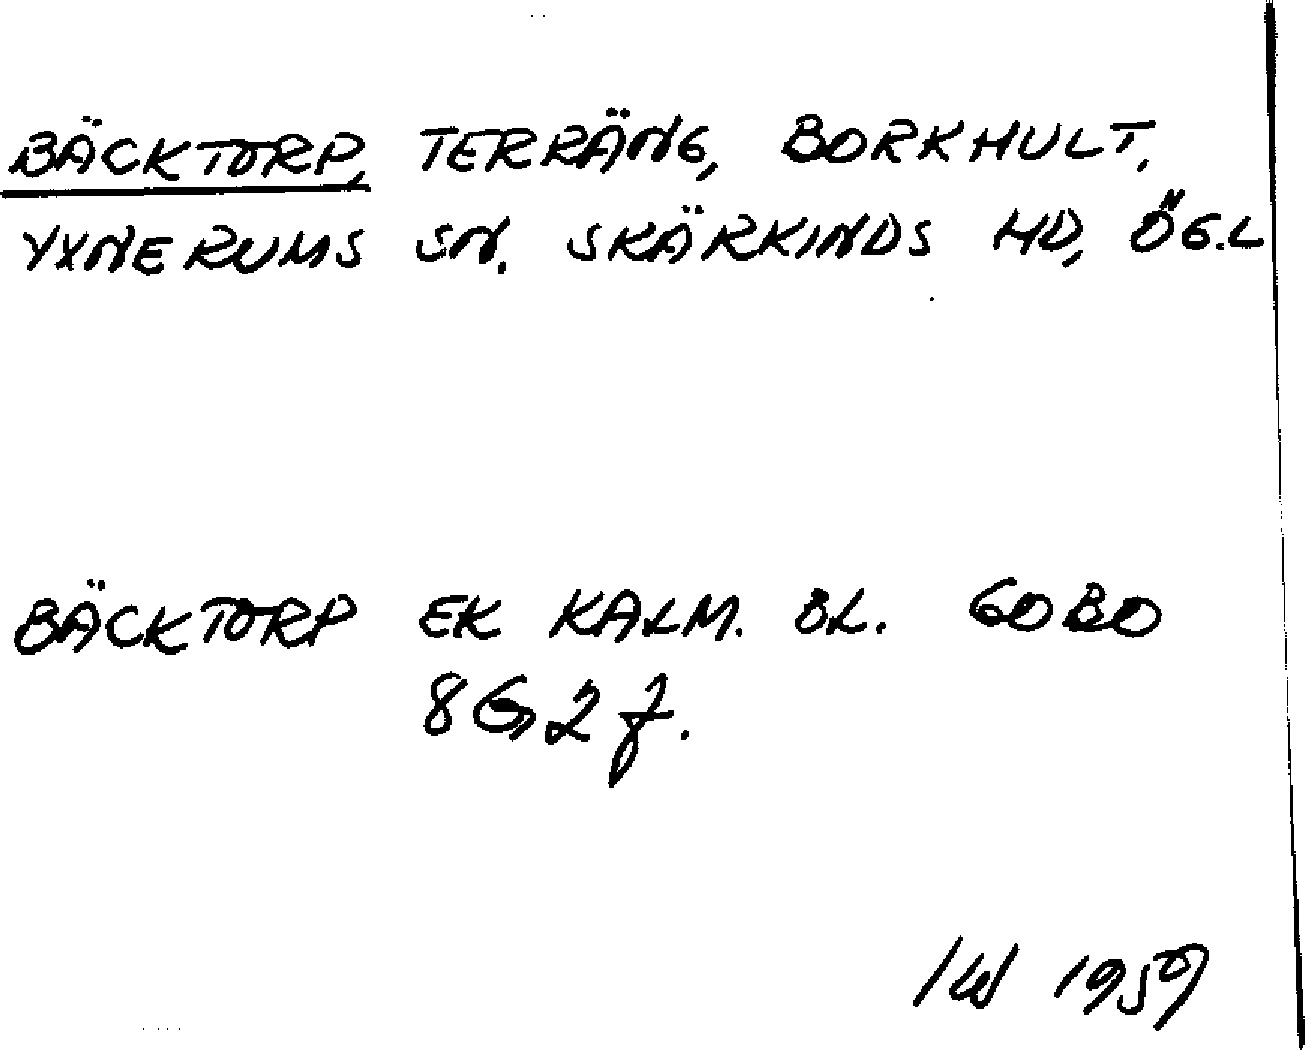 BÄCKTORP, TERRÄNG, BORKHULT,
YXNERUMS SN. SKÄRKINDS HD, ÖG.L
BÄCKTORP EK KALM. BL. GOBO
8G2f.
IW 1959